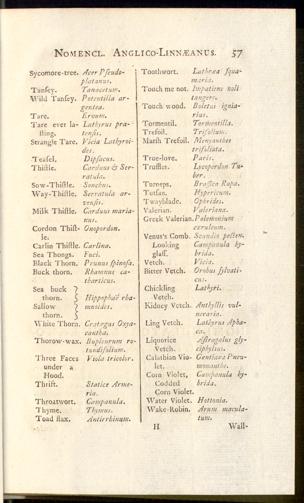 NOMENCL. ANGLICO-LINNÆANUS. 57
Sycomore-tree. Acer Pseudo-
platanus.
Tansey. Tanacetum.
Wild Tansey. Potentilla ar-
gentea.
Tare. Ervum.
Tare ever la- Lathyrus pra-
sting. tensis.
Strangle Tare. Vicia Lathyroi-
des.
Teasel. Dipsacus.
Thistle. Carduus & Ser-
ratula.
Sow-Thistle. Sonchus.
Way-Thistle. Serratula ar-
vensis.
Milk Thistle. Carduus maria-
nus.
Cordon Thist- Onopordon.
le.
Carlin Thistle. Carlina.
Sea Thongs. Fuci.
Black Thorn. Prunus spinosa.
Buck thorn. Rhamnus ca-
tharticus.
Sea buck
thorn. Hippophaë rha-
Sallow mnoides.
thorn.
White Thorn. Cratægus Oxya-
cantha.
Thorow-wax. Bupleurum ro-
tundifolium.
Three Faces Viola tricolor.
under a
Hood.
Thrift. Statice Arme-
ria.
Throatwort. Campanula.
Thyme. Thymus.
Toad flax. Antirrhinum.
Toothwort. Lathræa squa-
maria.
Touch me not. Impatiens noli
tangere.
Touch wood. Boletus ignia-
rius.
Tormentil. Tormentilla.
Trefoil. Trifolium.
Marsh Trefoil. Menyanthes
trifoliata.
True-love. Paris.
Truffles. Lycoperdon Tu-
ber.
Turneps. Brassica Rapa.
Tutsan. Hypericum.
Twayblade. Ophrides.
Valerian. Valeriana.
Greek Valerian. Polemonium
cæruleum.
Venus's Comb. Scandix pecten.
Looking Campanula hy-
glass. brida.
Vetch. Vicia.
Bitter Vetch. Orobus sylvati-
cus.
Chickling Lathyri.
Vetch.
Kidney Vetch. Anthyllis vul-
neraria.
Ling Vetch. Lathyrus Apha-
ca.
Liquorice Astragalus gly-
Vetch. ciphyllus.
Calathian Vio- Gentiana Pneu-
let. monanthe.
Corn Violet, Campanula hy-
Codded brida.
Corn Violet.
Water Violet. Hottonia.
Wake-Robin. Arum macula-
tum.
H Wall-